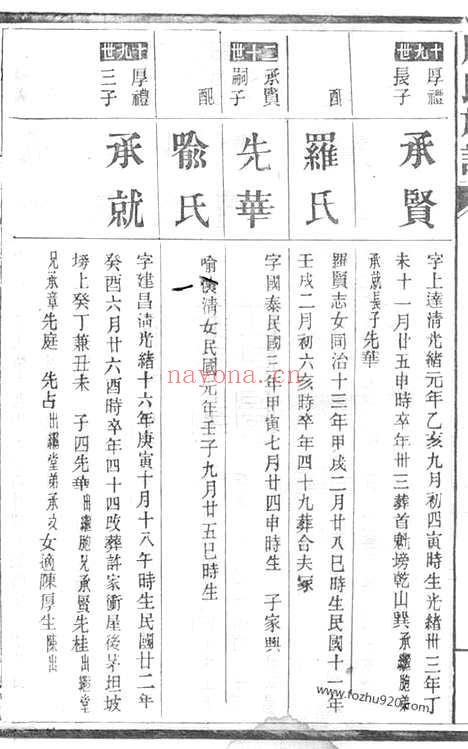 十九世
厚禮
長子
承賢
字上達清光緒元年乙亥九月初四寅時生光緒卅三年丁
未十一月廿五申時卒年卅三葬首魁塝乾山巽 承繼胞弟
承就長子先華
配
羅氏
羅賢志女同治十三年甲戌二月廿八巳時生民國十一年
壬戌二月初六亥時卒年四十九葬合夫冢
二十世
承賢
嗣子
先華
字國泰民國三年甲寅七月廿四申時生 子家興
配
喻氏
喻漢清女民國元年壬子九月廿五巳時生
十九世
厚禮
三子
承就
字建昌清光緒十六年庚寅十月十八午時生民國廿二年
癸酉六月廿六酉時卒年四十四改葬許家衝屋後茅坦坡
塝上癸丁兼丑未 子四先華出繼胞兄承賢先桂出繼堂
兄承章先庭 先占出繼堂弟承文女適陳厚生陳出
nayona.cn
www.fozhu920.com